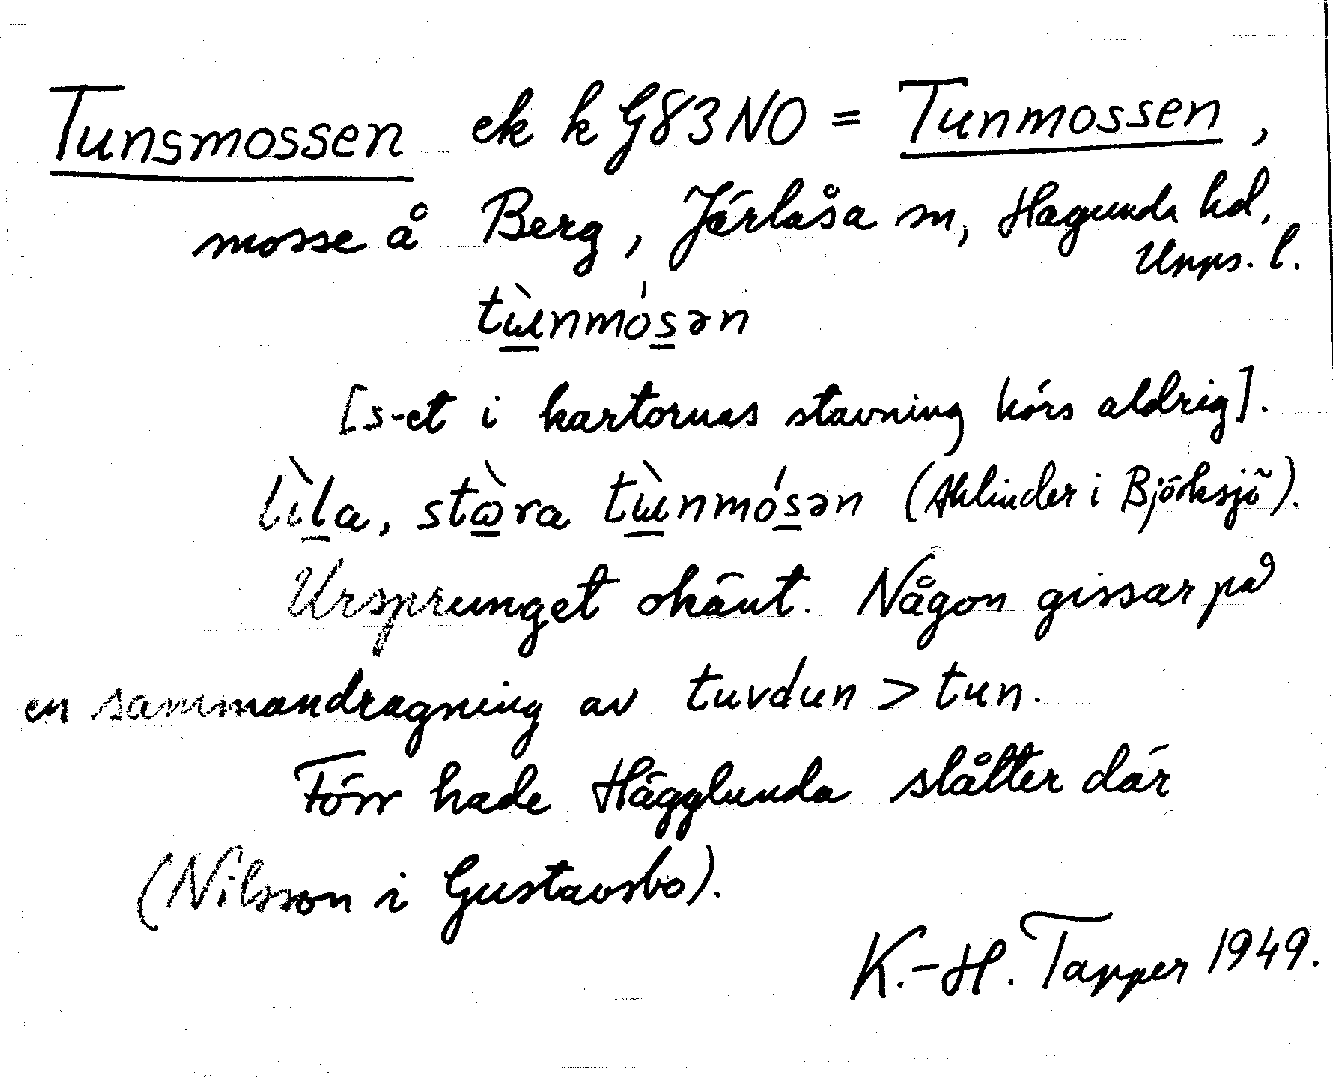 Tunsmossen ek k G83NO = Tunmossen,
mosse å Berg, Järlåsa sn, Hagunda hd,
Upps. l.
tɯ̀nmósən
[s-et i kartornas stavning hörs aldrig].
lìla, stòra tɯ̀nmósən (Ahlinder i Björksjö).
Ursprunget okänt. Någon gissar på
en sammandragning av tuvdun > tun.
Förr hade Hägglunda slåtter där
(Nilsson i Gustavsbo).
K.-H. Tapper 1949.